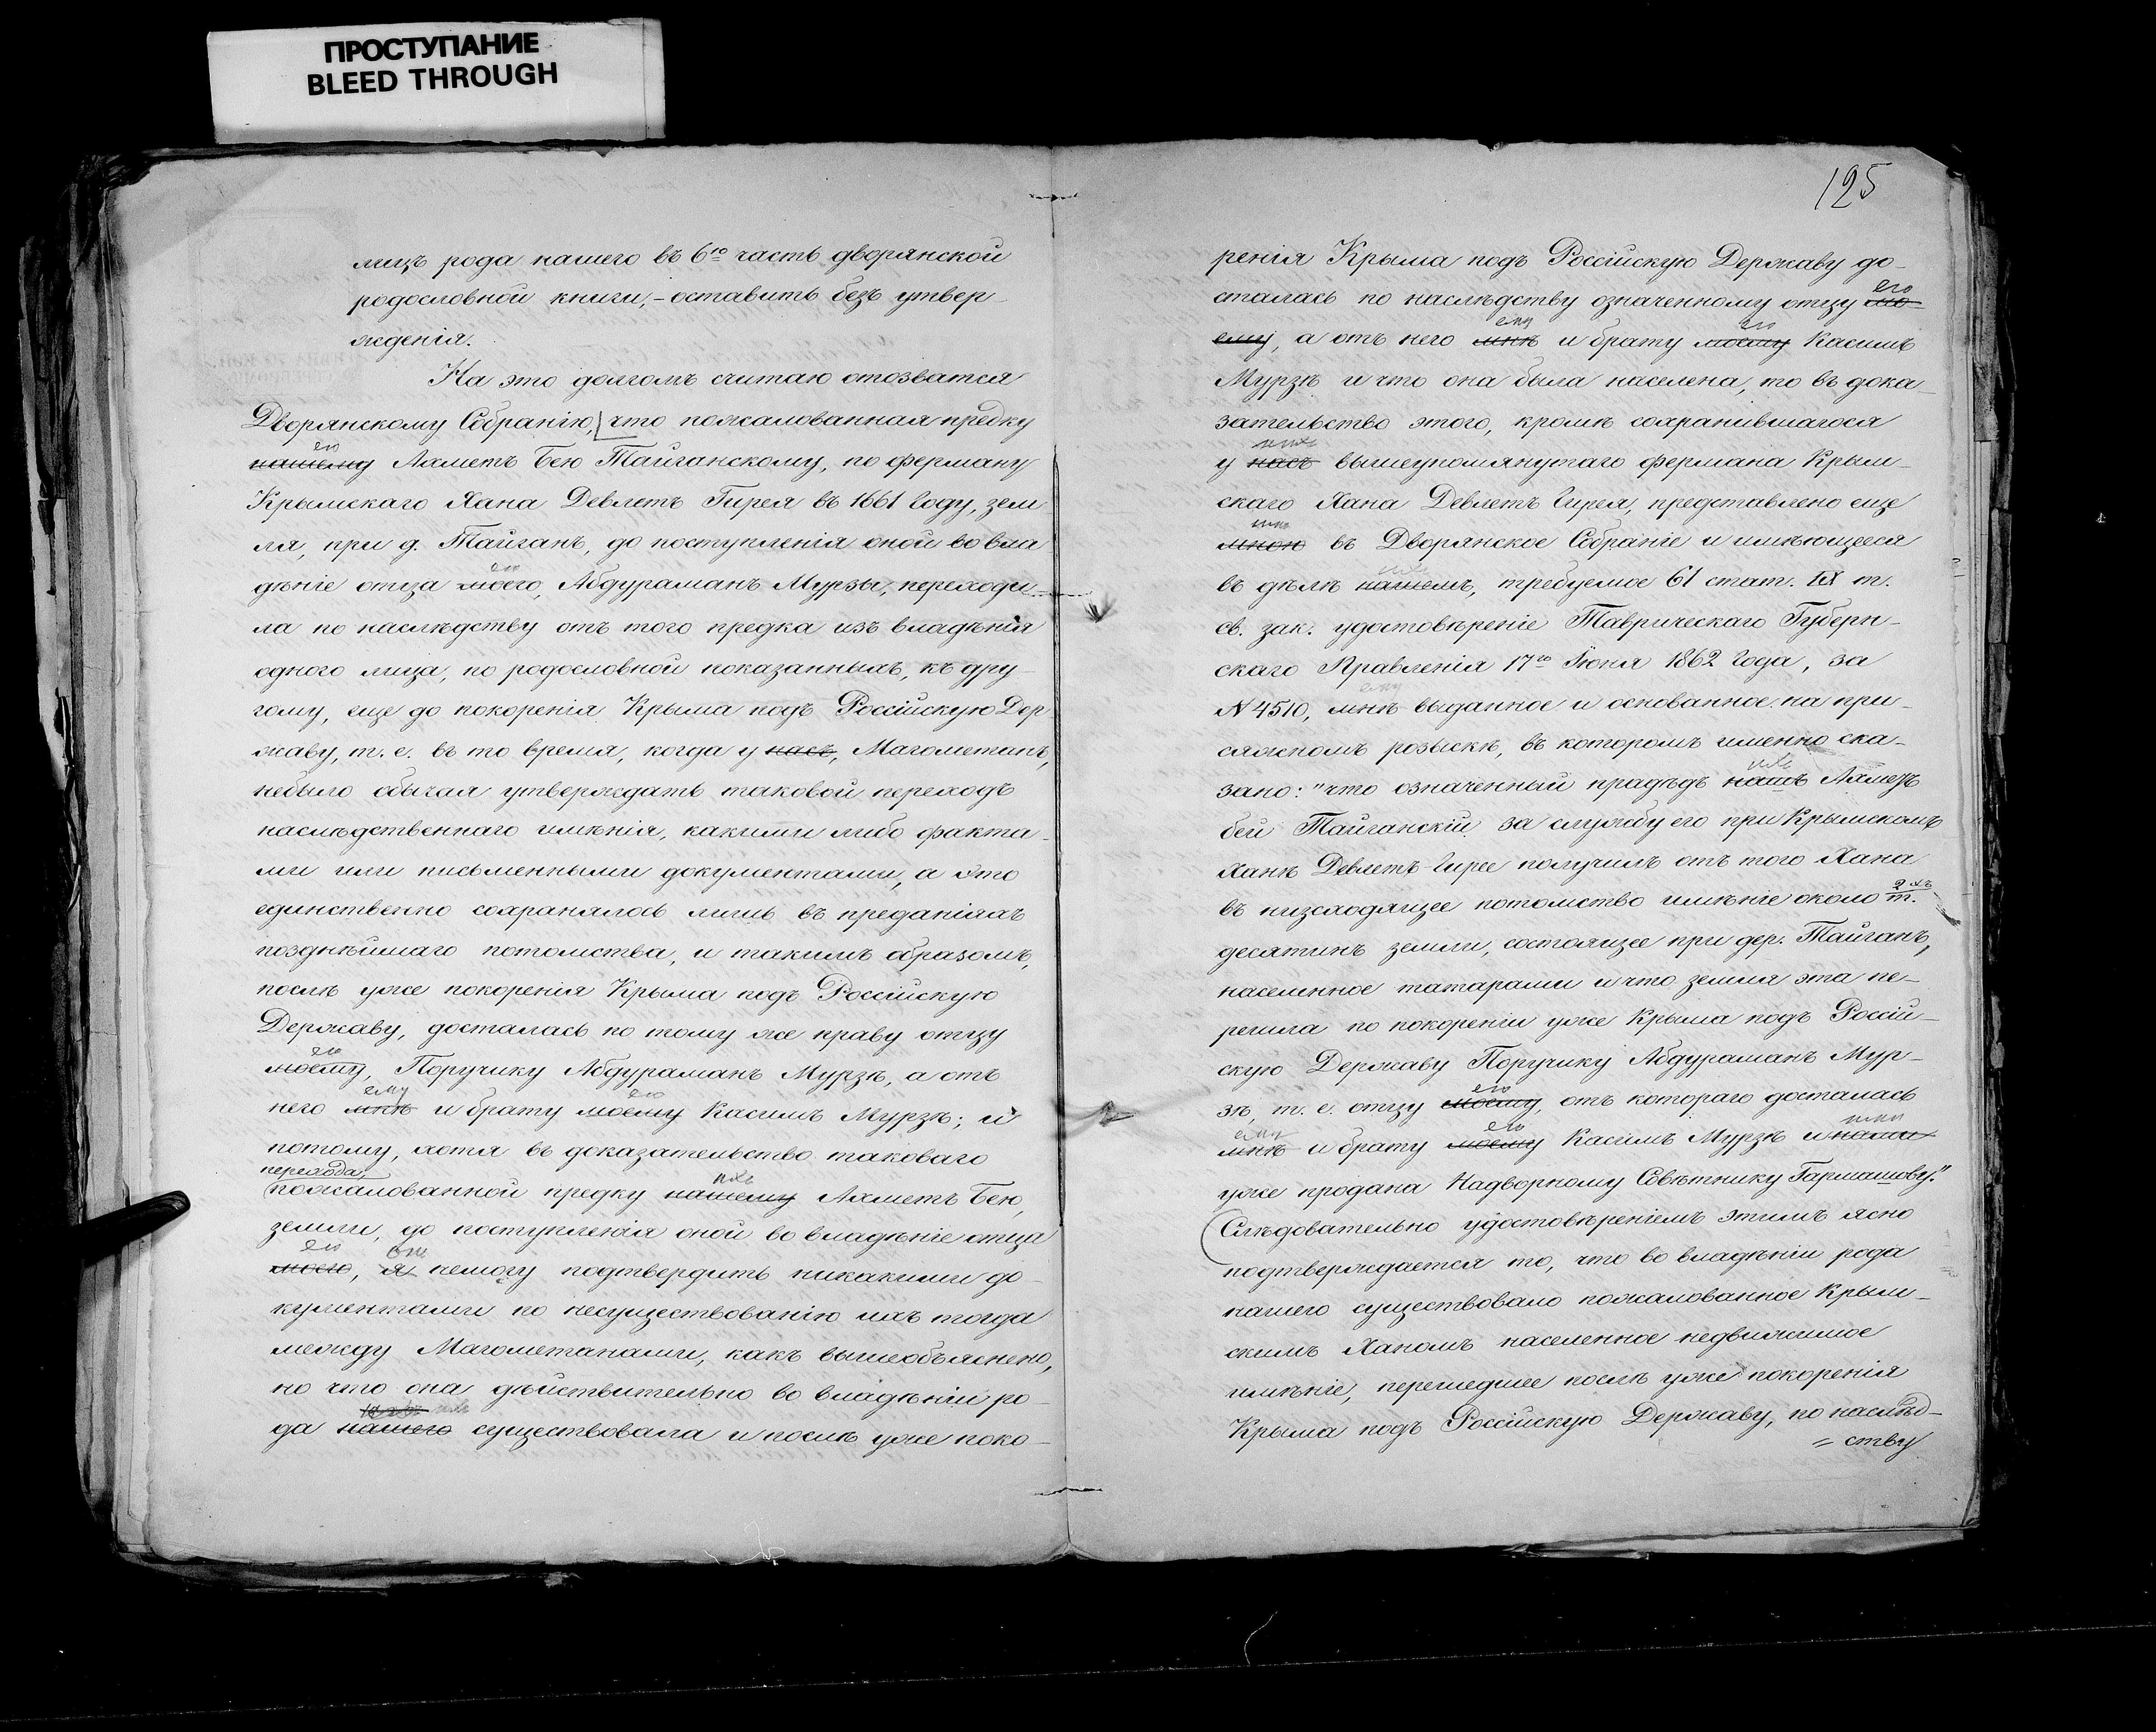 ПРОСТУПАНИЕ
BLEED THROUGH
лицъ рода нашего въ 6ю часть дворянской
родословной книги,- оставить безъ утвер-
жденія.
На это долгомъ считаю отозватся
Дворянскому Собранію, что пожалованная предку
его
нашему Ахметъ Бею Тайганскому, по ферману
Крымскаго Хана Девлетъ Гирея въ 1661 году, зем
ля, при д. Тайганъ, до поступленія оной во вла
его
дѣніе отца моего, Абдураманъ Мурзы, переходи-
ла по наслѣдству отъ того предка изъ владѣнія
одного лица, по родословной показаннымъ, къ дру-
гому, еще до покоренія Крыма подъ Россійскую Дер
жаву, т. е. въ то время, когда у насъ, Магометанъ,
небыло обычая утверждать таковой переходъ
наслѣдственнаго имѣнія, какими либо факта-
ми или письменными документами, а это
единственно сохранялось лишь въ преданіяхъ
позднѣйшаго потомства, и такимъ образомъ,
послѣ уже покоренія Крыма подъ Россійскую
Державу, досталась по тому же праву отцу
его
моему, Поручику Абдураманъ Мурзѣ, а отъ
ему его
него мнѣ и брату моему Касимъ Мурзѣ; и
потому, хотя въ доказательство таковаго
перехода,
пожалованной предку нашему Ахметъ Бею,
ихъ
земли, до поступленія оной во владѣніе отца
его онъ
моего, я немогу подтвердить никакими до-
кументами по несуществованію ихъ тогда
между Магометанами, какъ вышеобъяснено,
но что она дѣйствительно во владѣніи ро-
ихъ
да нашего существовала и послѣ уже поко-
125
ренія Крыма подъ Россійскую Державу до-
его
сталась по наслѣдству означенному отцу мо-
ему его
ему, а отъ него мнѣ и брату моему Касимъ
Мурзѣ и что она была населена, то въ дока-
зательство этого, кромѣ сохранившагося
нихъ
у насъ вышеупомянутаго фермана Крым-
скаго Хана Девлетъ Гирея, представлено еще
имъ
мною въ Дворянское Собраніе и имѣющееся
ихъ
въ дѣлѣ нашемъ, требуемое 61 стат. IX т.
св. зак. удостовѣреніе Таврическаго Губерн-
скаго Правленія 17го Іюня 1862 года, за
ему
N 4510, мнѣ выданное и основанное на при-
сяжномъ розыскѣ, въ которомъ именно ска-
ихъ
зано: "что означенный прадѣдъ нашъ Ахметъ
бей Тайганскій за службу его при Крымскомъ
Ханѣ Девлетъ-Гирее получилъ отъ того Хана
2хъ
въ низсходящее потомство имѣніе около т.
десятинъ земли, состоящее при дер. Тайганъ,
населенное татарами и что земля эта пе-
решла по покореніи уже Крыма подъ Россій-
скую Державу Поручику Абдураманъ Мур-
его
зѣ, т. е. отцу моему, отъ котораго досталась
ему его ими
мнѣ и брату моему Касимъ Мурзѣ и нами
уже продана Надворному Совѣтнику Гармашову."
Слѣдовательно удостовѣреніемъ этимъ ясно
подтверждается то, что во владѣніи рода
нашего существовало пожалованное Крым-
скимъ Ханомъ населенное недвижимое
имѣніе, перешедшее послѣ уже покоренія
Крыма подъ Россійскую Державу, по наслѣд-
= ству